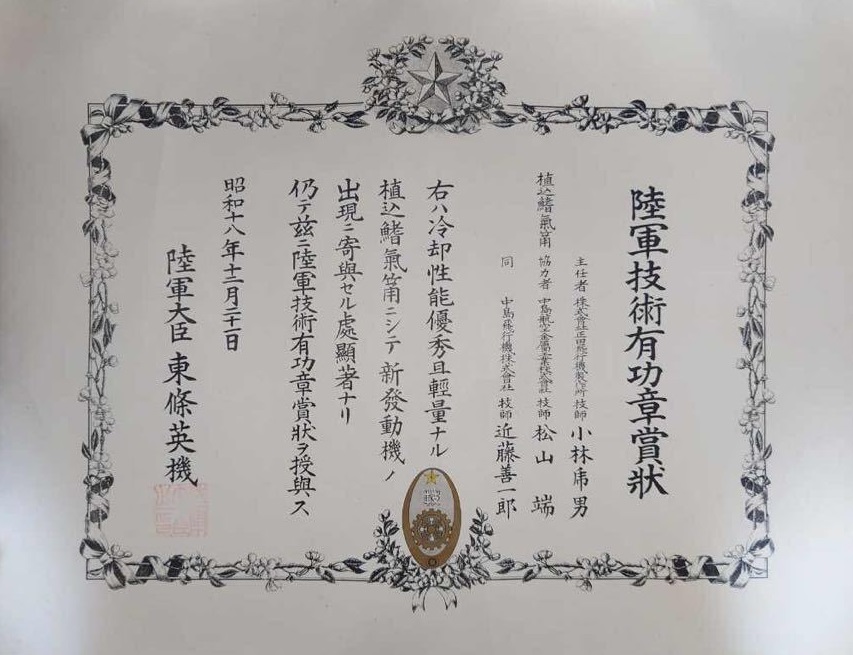 陸軍技術有功章賞狀
主任者 株式會社正田飛行機製作所 技師 小林甫男
植込鰭氣筩 協力者 中島航空金屬工業株式會社 技師 松山端
同 中島飛行機株式會社 技師 近藤善一郎
右ハ冷却性能優秀且輕量ナル
植込鰭氣筩ニシテ新發動機ノ
出現ニ寄與セル處顯著ナリ
仍テ茲ニ陸軍技術有功章賞狀ヲ授與ス
昭和十八年十二月二十一日
陸軍大臣 東條英機